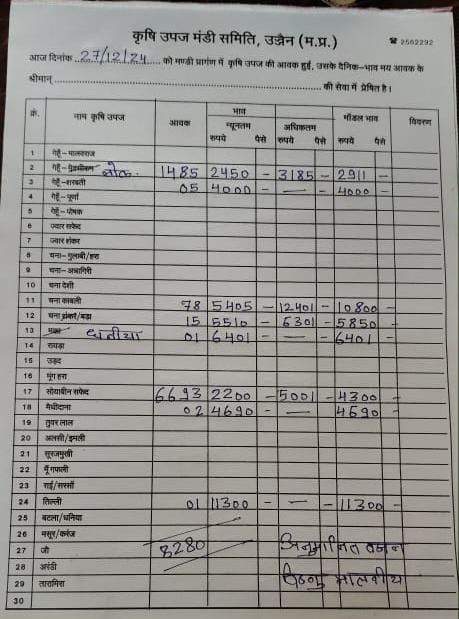 कृषि उपज मंडी समिति, उज्जैन (म.प्र.) ☎ 2562292
आज दिनांक 27/12/24 को मण्डी प्रागंण में कृषि उपज की आवक हुई, उसके दैनिक-भाव मय आवक के
श्रीमान् की सेवा में प्रेषित है।
क्रं. नाम कृषि उपज आवक भाव मॉडल भाव विवरण
न्यूनतम अधिकतम
रुपये पैसे रुपये पैसे रुपये पैसे
1 गेहूँ-मालवराज
2 गेहूँ- लोक. 1485 2450 - 3185 - 2911 -
3 गेहूँ-शरबती 05 4000 - — - 4000 -
4 गेहूँ-पूर्णा
5 गेहूँ-पोषक
6 ज्वार सफेद
7 ज्वार शंकर
8 चना-गुलाबी/हरा
9 चना-
10 चना देशी
11 चना काबली 78 5405 - 12401 - 10800 -
12 चना शंकर/बड़ा 15 5510 - 6301 - 5850 -
13 मक्का धनीया 01 6401 - — - 6401 -
14 रायड़ा
15 उड़द
16 मूंग हरा
17 सोयाबीन सफेद 6693 2200 - 5001 - 4300 -
18 मैथीदाना 02 4690 - — 4690 -
19 तुवर लाल
20 अलसी/इमली
21 सूरजमुखी
22 मूँगफली
23 राई/सरसों
24 तिल्ली 01 11300 - — - 11300 -
25 बटला/धनिया
26 मसूर/करंज
27 जौ 8280 अनुमानित वजन
28 अरंडी
29 तारामिरा मालवीय
30